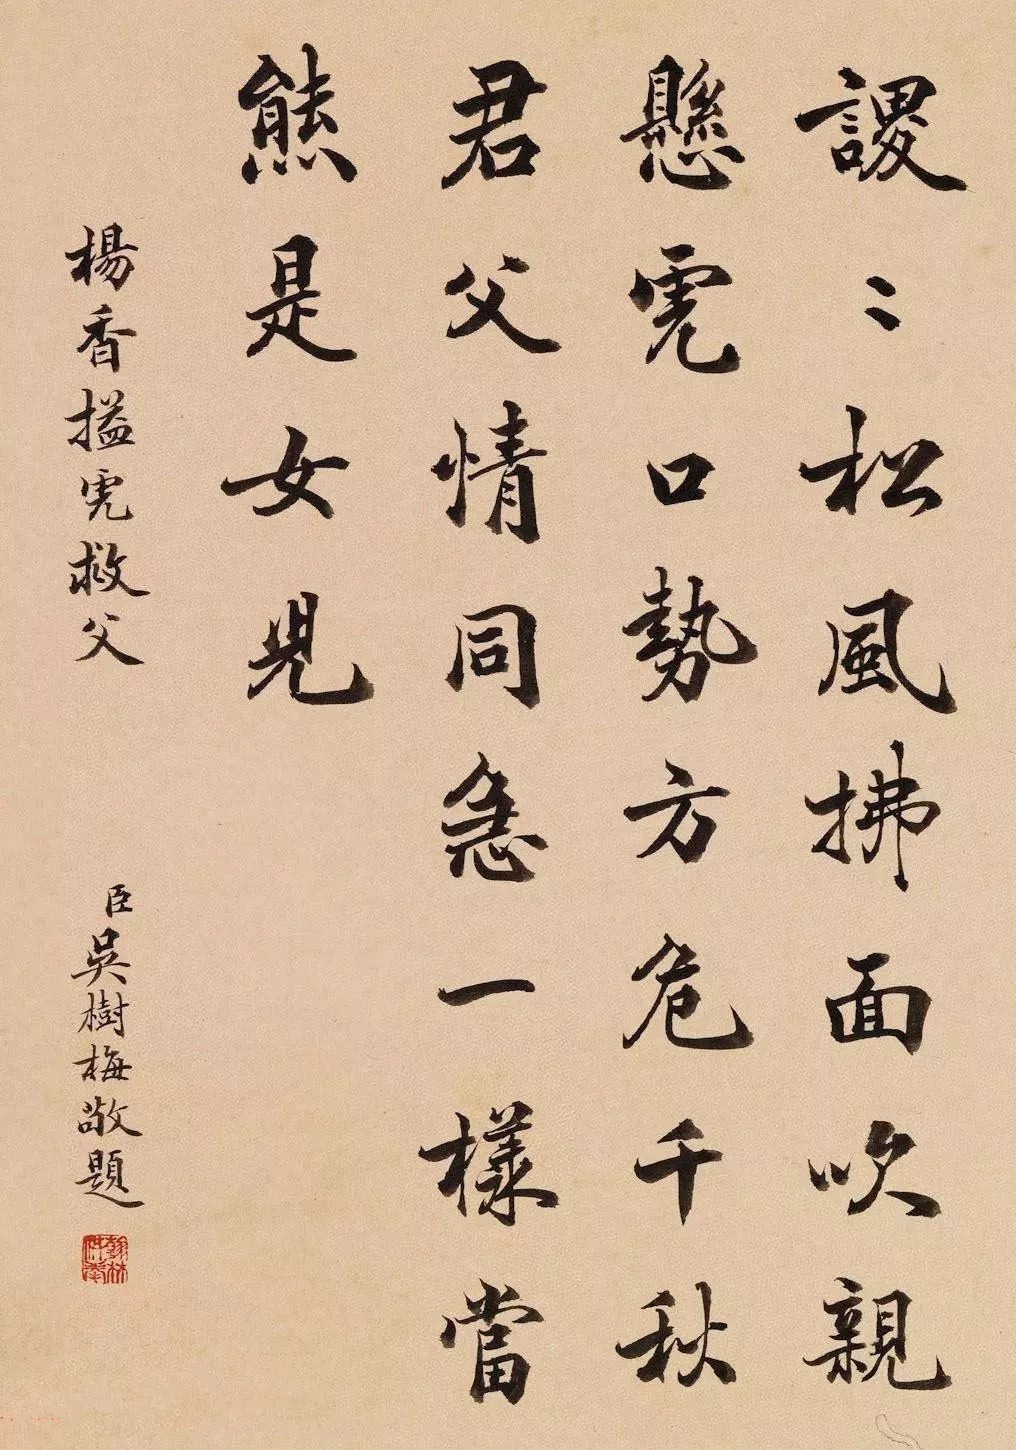 謖〻松風拂面吹親
懸虎口勢方危千秋
君父情同急一樣當
熊是女兒
楊香搤虎救父
臣吳樹梅敬題
翰林供奉